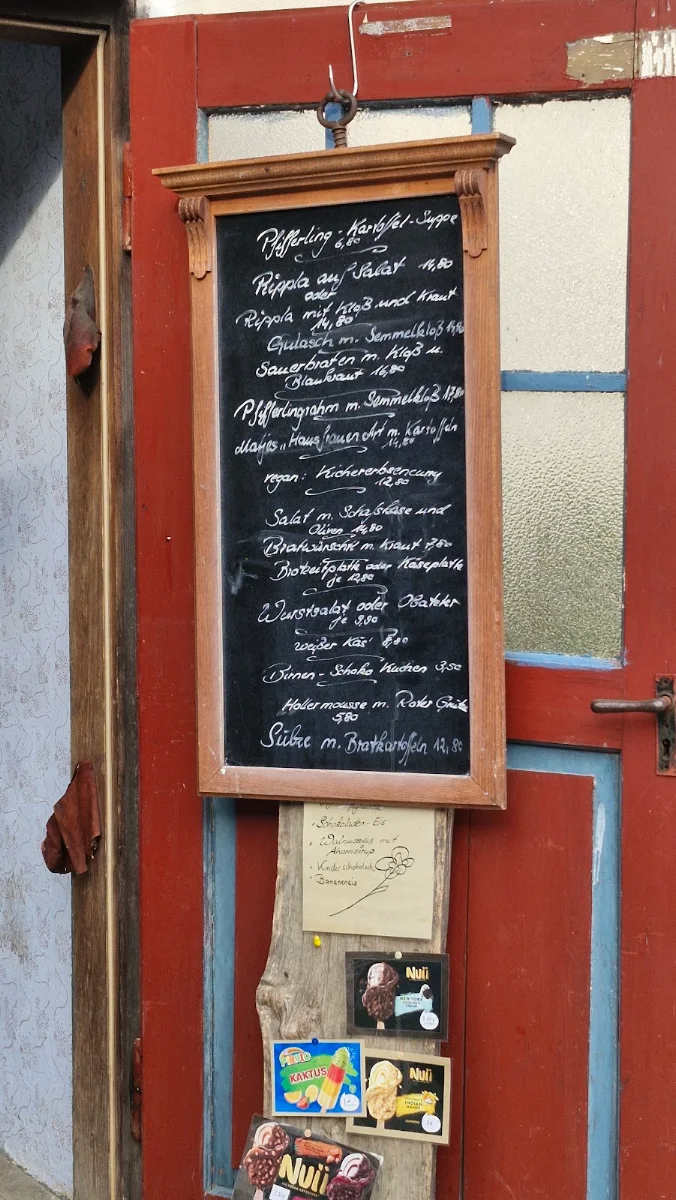 Pfifferling - Kartoffel - Suppe
6,80
Rippla auf Salat 14,80
oder
Rippla mit Kloß und Kraut
14,80
Gulasch m. Semmelkloß
Sauerbraten m. Kloß u.
Blaukraut 16,80
Pfifferlingrahm m. Semmelkloß 17,80
Matjes "Hausfrauen Art m. Kartoffeln
14,80
vegan: Kichererbsencurry
12,80
Salat m. Schafskäse und
Oliven 14,80
Bratwürschtl m. Kraut 7,80
Brotzeitplatte oder Käseplatte
je 12,80
Wurstsalat oder Obatzter
je 9,80
weißer Käs' 8,80
Birnen - Schoko Kuchen 3,50
Hollermousse m. Roter Grütze
5,80
Sülze m. Bratkartoffeln 12,80
. Schokoladen-Eis
. Walnusseis mit
Ahornsirup
. Kinderschokolade
. Bananeneis
Nuii
NEW YORK
Pirulo
KAKTUS
Nuii
INDIAN
Nuii